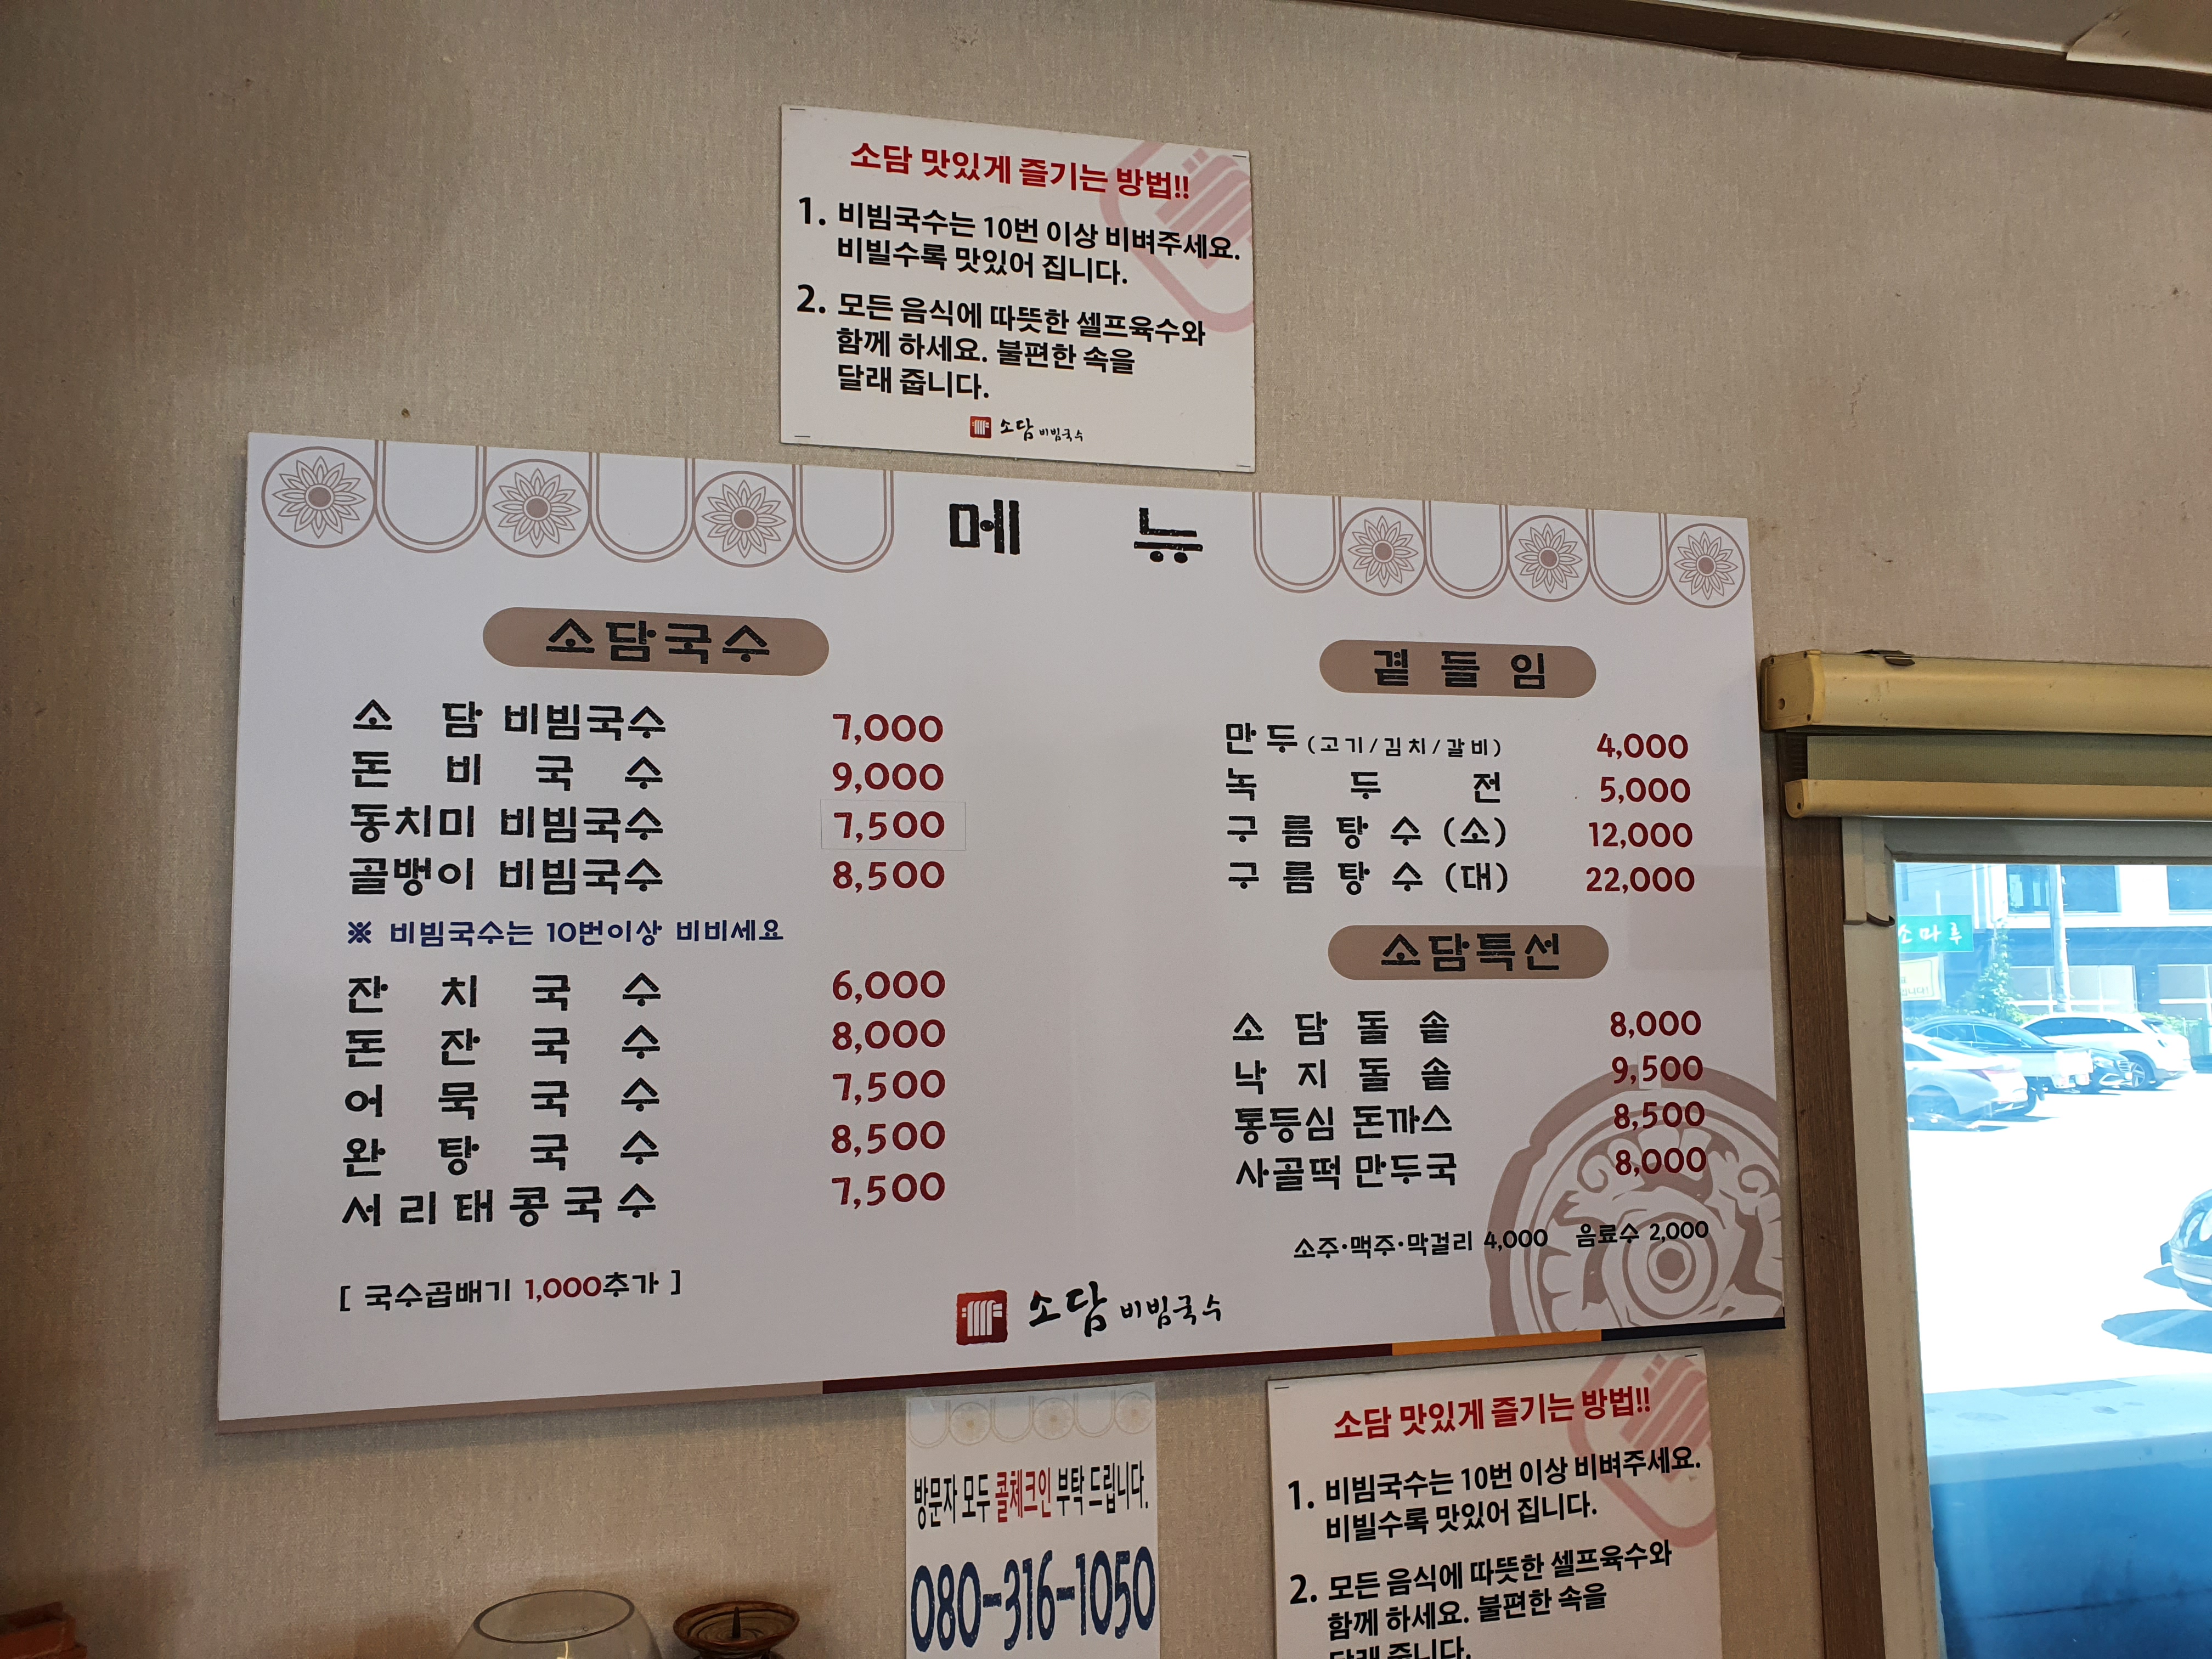 소담 맛있게 즐기는 방법!!
1. 비빔국수는 10번 이상 비벼주세요.
비빌수록 맛있어 집니다.
2. 모든 음식에 따뜻한 셀프육수와
함께 하세요. 불편한 속을
달래 줍니다.
소담 비빔국수
메 뉴
소담국수
소 담 비빔국수 7,000
돈 비 국 수 9,000
동치미 비빔국수 7,500
골뱅이 비빔국수 8,500
※ 비빔국수는 10번이상 비비세요
잔 치 국 수 6,000
돈 잔 국 수 8,000
어 묵 국 수 7,500
완 탕 국 수 8,500
서 리 태 콩 국 수 7,500
[ 국수곱배기 1,000추가 ]
곁 들 임
만 두 (고기/김치/갈비) 4,000
녹 두 전 5,000
구 름 탕 수 (소) 12,000
구 름 탕 수 (대) 22,000
소담특선
소 담 돌 솥 8,000
낙 지 돌 솥 9,500
통등심 돈까스 8,500
사골떡 만두국 8,000
소주·맥주·막걸리 4,000 음료수 2,000
소담 비빔국수
방문자 모두 콜체크인 부탁 드립니다.
080-316-1050
소담 맛있게 즐기는 방법!!
1. 비빔국수는 10번 이상 비벼주세요.
비빌수록 맛있어 집니다.
2. 모든 음식에 따뜻한 셀프육수와
함께 하세요. 불편한 속을
달래 줍니다.
소마루